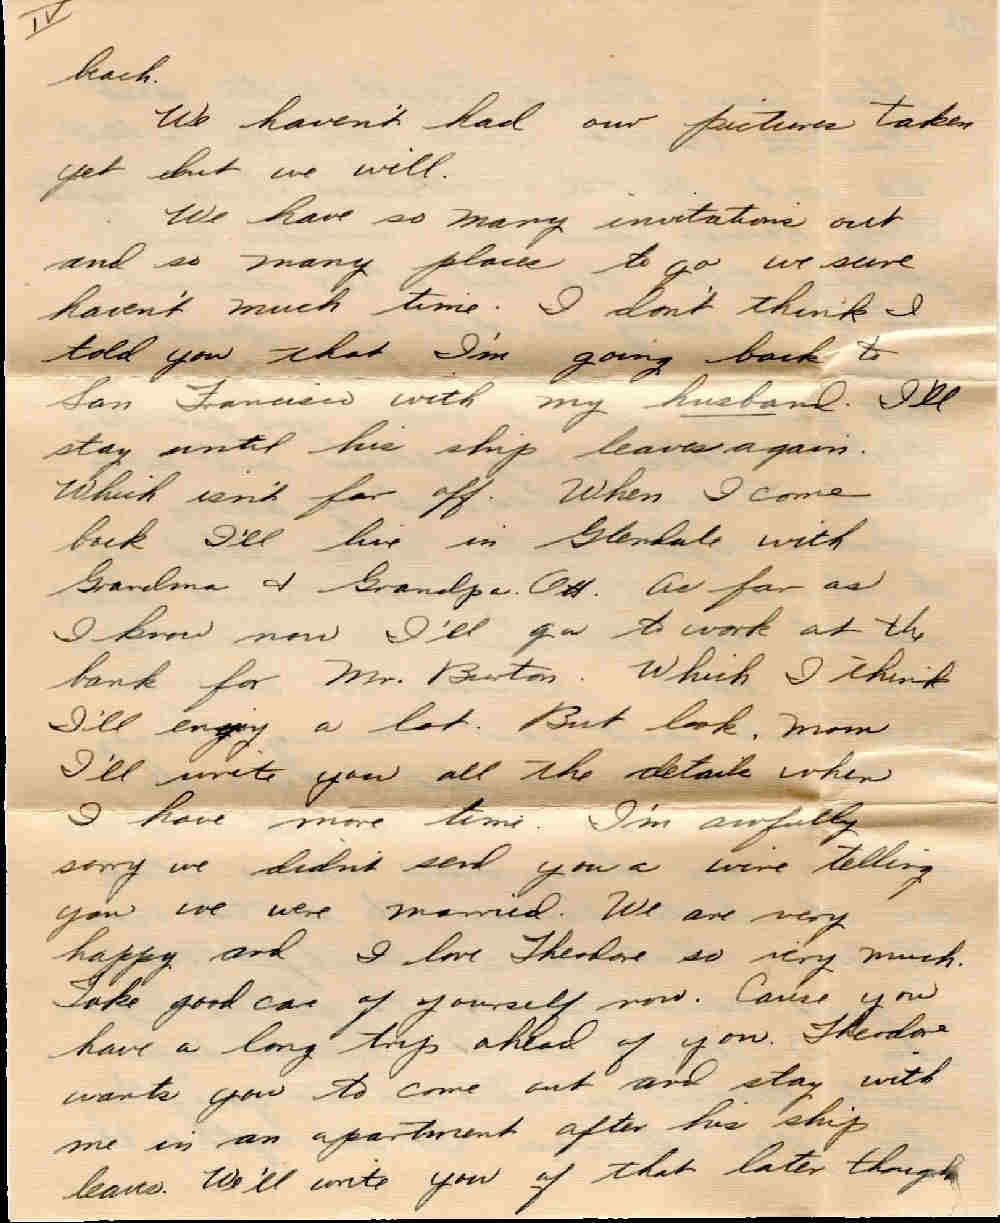 IV
beach.
We haven't had our pictures taken
yet but we will.
We have so many invitations out
and so many places to go we sure
haven't much time. I don't think I
told you that I'm going back to
San Francisco with my husband. I'll
stay until his ship leaves again.
Which isn't far off. When I come
back I'll live in Glendale with
Grandma & Grandpa. Ott. As far as
I know now I'll go to work at the
bank for Mr. Burton. Which I think
I'll enjoy a lot. But look, mom
I'll write you all the details when
I have more time. I'm awfully
sorry we didn't send you a wire telling
you we were married. We are very
happy and I love Theodore so very much.
Take good care of yourself now. Cause you
have a long trip ahead of you. Theodore
wants you to come out and stay with
me in an apartment after his ship
leaves. We'll write you of that later though